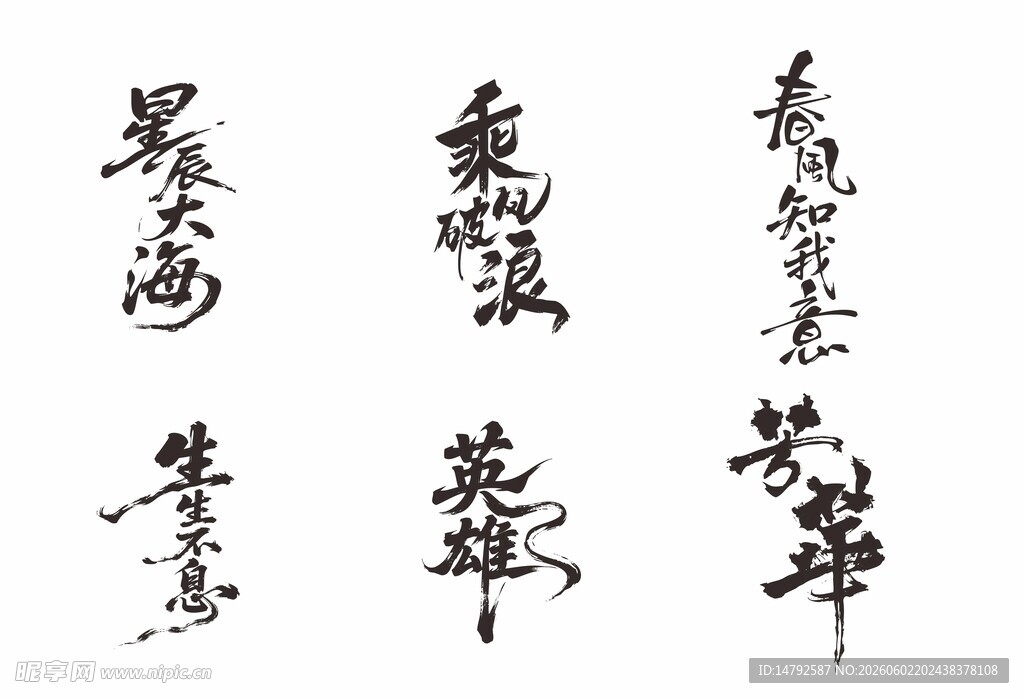 星辰大海
乘风破浪
春風知我意
生生不息
英雄
芳華
昵享网 www.nipic.cn
ID:14792587 NO:20260602202438378108